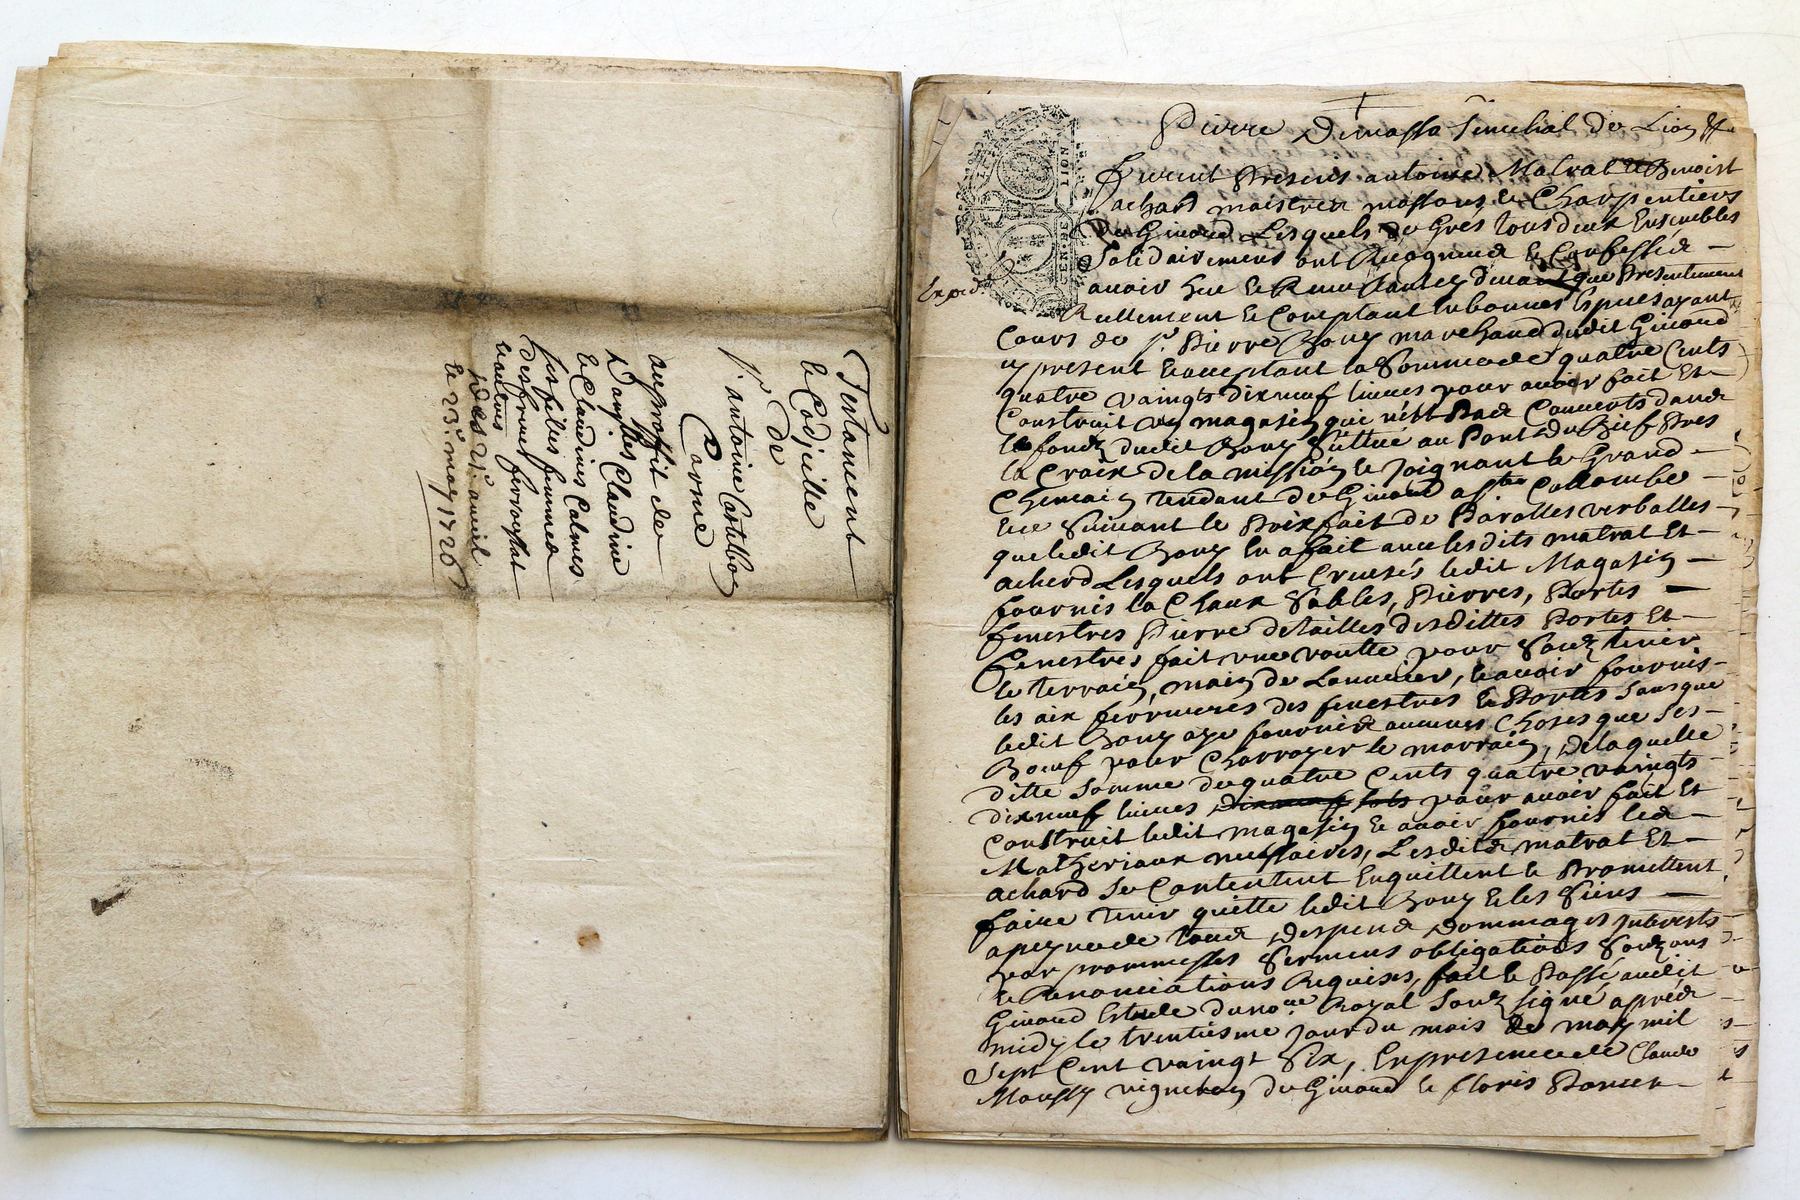 Testament
& Codicille
de
Sr. antoine Castilhon
Corne
au proffit de
Dan.les Claudine
& Claudines Calmes
ses filles femmes
des freres
& autres
des 21e. avril
& 23e. may 1726
GENER LION
Pierre Demassa Senechal de Lion
Furent Presens antoine Matrat & Benoist
achard maistres massons & Charpentiers
De Givord Lesquels de Grés tous deux Ensembles
Solidairement ont Recogneu & Confessé
avoir heu & Receu que Presentement
Reellement & Comptant En bonnes Especes ayant
Expéd.
Cours de Sr. Pierre Bony marchand dudit Givord
cy present & acceptant la Somme de quatre Cents
quatre vaingts dixneuf livres pour avoir fait Et
Construit un magasin qui n'est Pas Couvert dans
le fondz dudit Bony Situé au Pont du Bief Pres
la Croix de la mission & Joignant le Grand
Chemain Tendant de Givord a Ste Collombe
& ce Suivant le Prixfait de Parolles verballes
que ledit Bony En a fait avec lesdits matrat Et
achard Lesquels ont Creusés ledit Magasin
fournis la Chaux Sables, Pierres, Portes
fenestres Pierre de tailles desdittes Portes Et
fenestres fait une voutte pour Soutz tenir
le terrain, main de Louvrier, & avoir fournis
les aix ferrures des fenestres & Portes Sans que
ledit Bony aye fournis aucunes Choses que Ses
Boeuf pour Charroyer le marrain, De laquelle
ditte Somme de quatre Cents quatre vaingts
dixneuf livres dixneuf sols pour avoir fait Et
Construit ledit magasin & avoir fournis les
Matheriaux nessaires, Lesdits matrat Et
achard Se Contentent En quittent & Promettent
faire Tenir quitte ledit Bony & les Siens
a peyne de tous Despens Dommages Interests
par prommesses Sermens obligations Soumissions
& Renonciations Requises, fait & Passé audit
Givord Estude du nore. Royal Soutz signé après
midy le trentiesme jour du mois de may mil
Sept Cent vaingt Six, En presence de Claude
Moussy vigneron de Givord & Floris Ponset